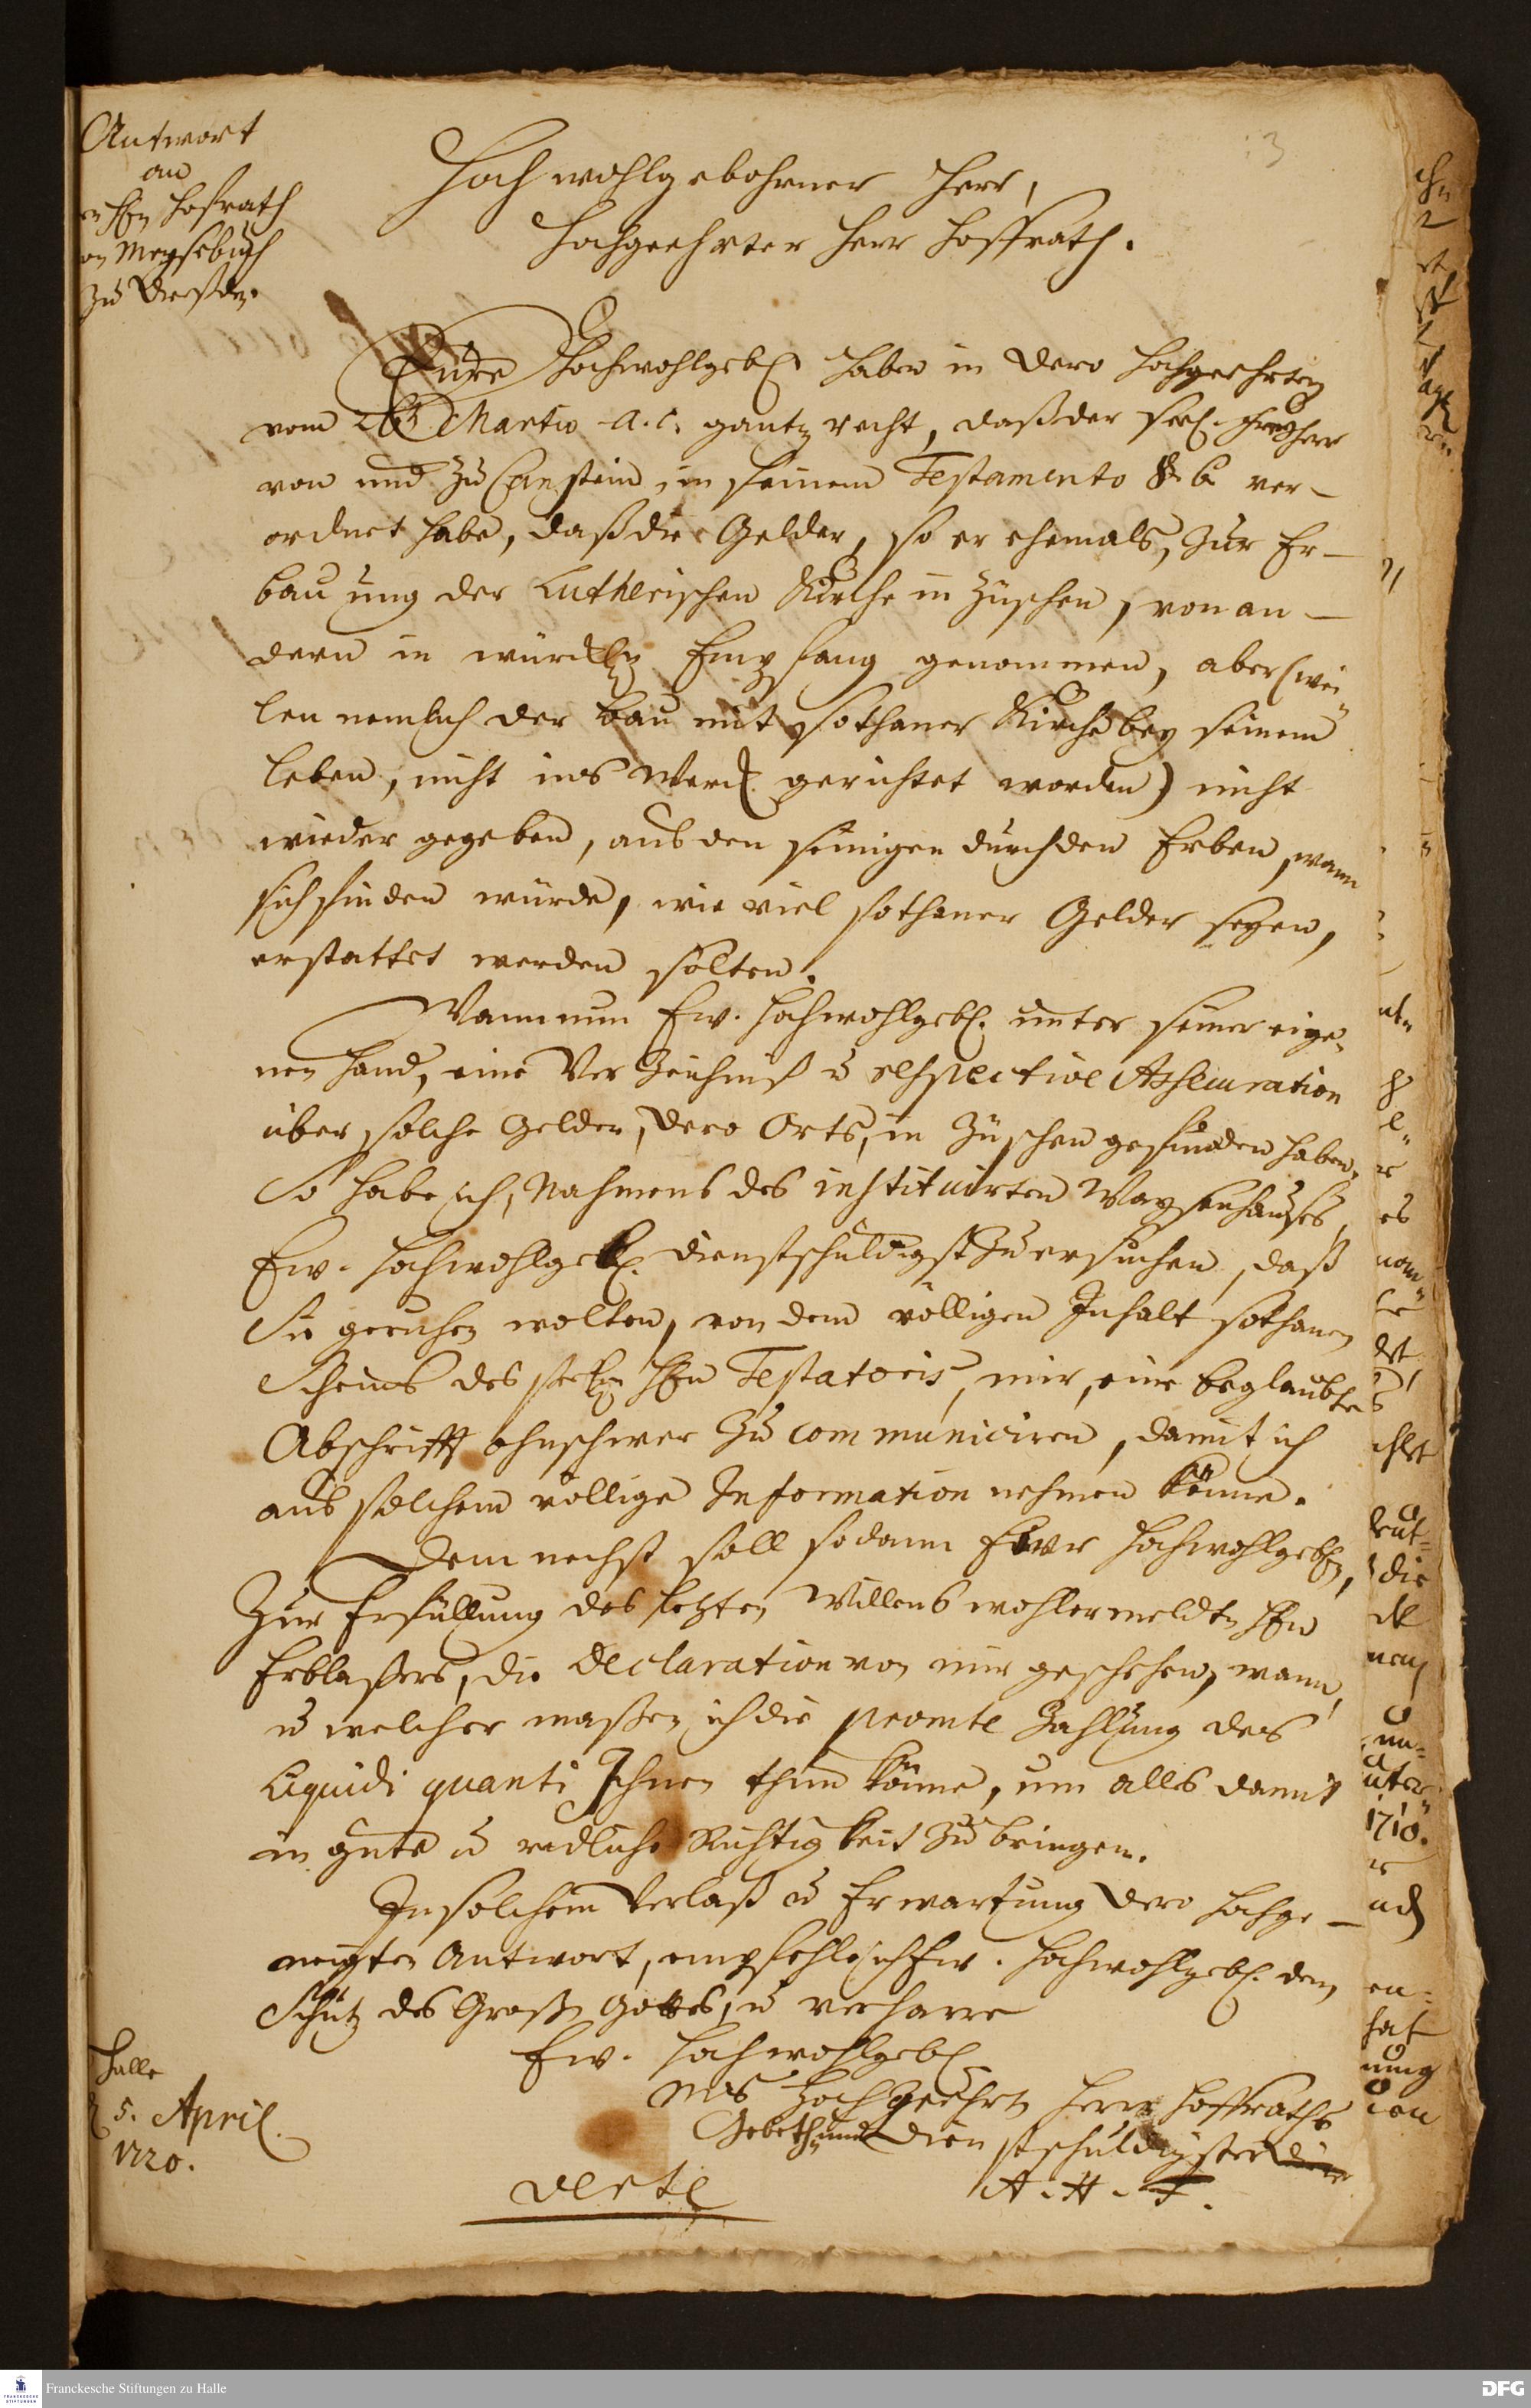 Antwort
an
Hrn Hofrath
von Meysebuch
zu Dreßden.
Hochwohlgebohrner Herr,
Hochgeehrter Herr Hoffrath.
Eure Hochwohlgeb. haben in dero hochgeehrten
vom Martio a. c. gantz recht, daß der seel. Freyherr
von und zu Canstein, in seinem Testamento §. 6. ver-
ordnet habe, daß die Gelder, so er ehemals, zur Er-
bauung der Lutherischen Kirche in Züschen, von an-
dern in würckl. Empfang genommen, aber (wei-
len nemlich der Bau mit sothaner Kirche bey seinem
Leben, nicht ins Werck gerichtet worden) nicht
wieder gegeben, aus den seinigen durch den Erben, wann
sich finden würde, wie viel sothaner Gelder seyen,
erstattet werden solten.
Wann nun Ew. Hochwohlgeb. unter seiner eige-
nen Hand, eine Verzeichniß u. respective Assecuration
über solche Gelder, dero Orts, in Züschen gefunden haben,
So habe ich, Nahmens des instituirten Waysenhauses,
Ew. Hochwohlgeb. dienstschuldigst zu ersuchen, daß
Sie geruhen wolten, von dem völligen Inhalt sothanen
Scheins des seel. Hrn Testatoris, mir, eine beglaubte
Abschrifft ohnschwer zu communiciren, damit ich
aus solchem völlige Information nehmen könne.
Dem nechst soll sodann Ewr Hochwohlgeb.,
Zur Erfüllung des letzten Willens wohlermeldten Hrn
Erblaßers, die Declaration von mir geschehen, wann,
u. welcher maßen ich die promte Zahlung des
Liquidi quanti Ihnen thun könne, um alls damit
in gute u. redliche Richtigkeit zu bringen.
In solchem Verlaß u. Erwartung dero hochge-
neigten Antwort, empfehle ich Ew. Hochwohlgeb. dem
Schutz des Großen Gottes, u. verharre
Ew. Hochwohlgeb.
Ms Hochgeehrten Herrn Hoffraths
Gebeth und dienstschuldigster
A. H. F.
Halle
5. April.
1720.